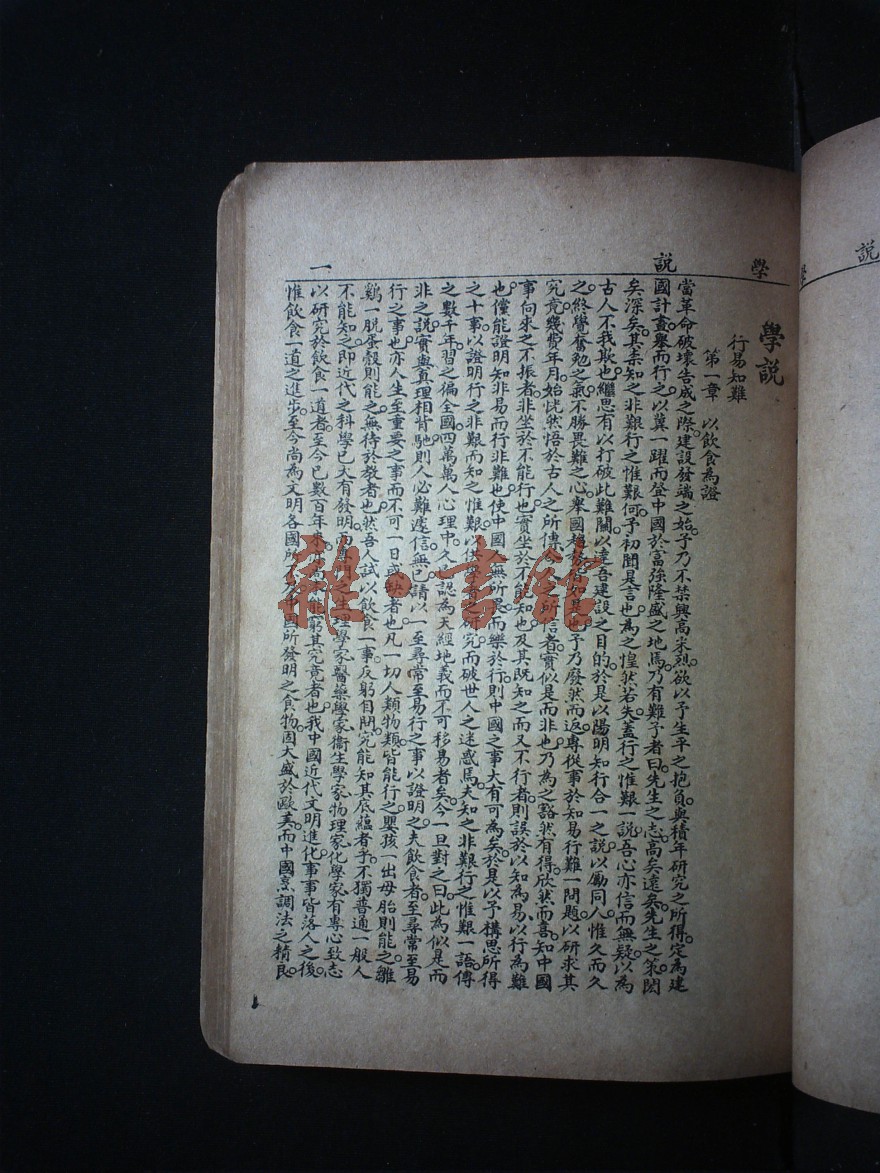 說
學
說
一
學說
行易知難
第一章 以飲食為證
當革命破壞告成之際。建設發端之始。予乃不禁興高采烈。欲以予生平之抱負。與積年研究之所得。定為建
國計畫。舉而行之。以冀一躍而登中國於富強隆盛之地焉。乃有難予者曰。先生之志高矣遠矣。先生之策閎
矣深矣。其柰知之非艱行之惟艱何。予初聞是言也。為之惶然若失。蓋行之惟艱一說。吾心亦信而無疑。以為
古人不我欺也。繼思有以打破此難關。以達吾建設之目的。於是以陽明知行合一之說。以勵同人。惟久而久
之。終覺奮勉之氣。不勝畏難之心。舉國趨勢皆如是也。予乃廢然而返。專從事於知易行難一問題。以研求其
究竟。幾費年月。始恍然悟於古人之所傳今人之所信者。實似是而非也。乃為之豁然有得。欣然而喜。知中國
事向來之不振者。非坐於不能行也。實坐於不能知也。及其既知之而又不行者。則誤於以知為易。以行為難
也。儻能證明知非易而行非難也。使中國人無所畏而樂於行。則中國之事大有可為矣。於是以予構思所得
之十事。以證明行之非艱而知之惟艱。以供學者之研究。而破世人之迷惑焉。夫知之非艱行之惟艱一語。傳
之數千年。習之徧全國。四萬萬人心理中。久已認為天經地義而不可移易者矣。今一旦對之曰。此為似是而
非之說。實與真理相背馳。則人必難遽信。無已。請以一至尋常至易行之事以證明之。夫飲食者。至尋常至易
行之事也。亦人生至重要之事而不可一日或缺者也。凡一切人類物類皆能行之。嬰孩一出母胎則能之。雛
鷄一脫蛋殼則能之。無待於教者也。然吾人試以飲食一事。反躬自問。究能知其底蘊者乎。不獨普通一般人
不能知之。即近代之科學已大有發明。而專門之生理學家醫藥學家衛生學家物理家化學家有專心致志
以研究於飲食一道者。至今已數百年來。亦尚未能窮其究竟者也。我中國近代文明進化。事事皆落人之後。
惟飲食一道之進步。至今尚為文明各國所不及。中國所發明之食物。固大盛於歐美。而中國烹調法之精良。
雜·書館